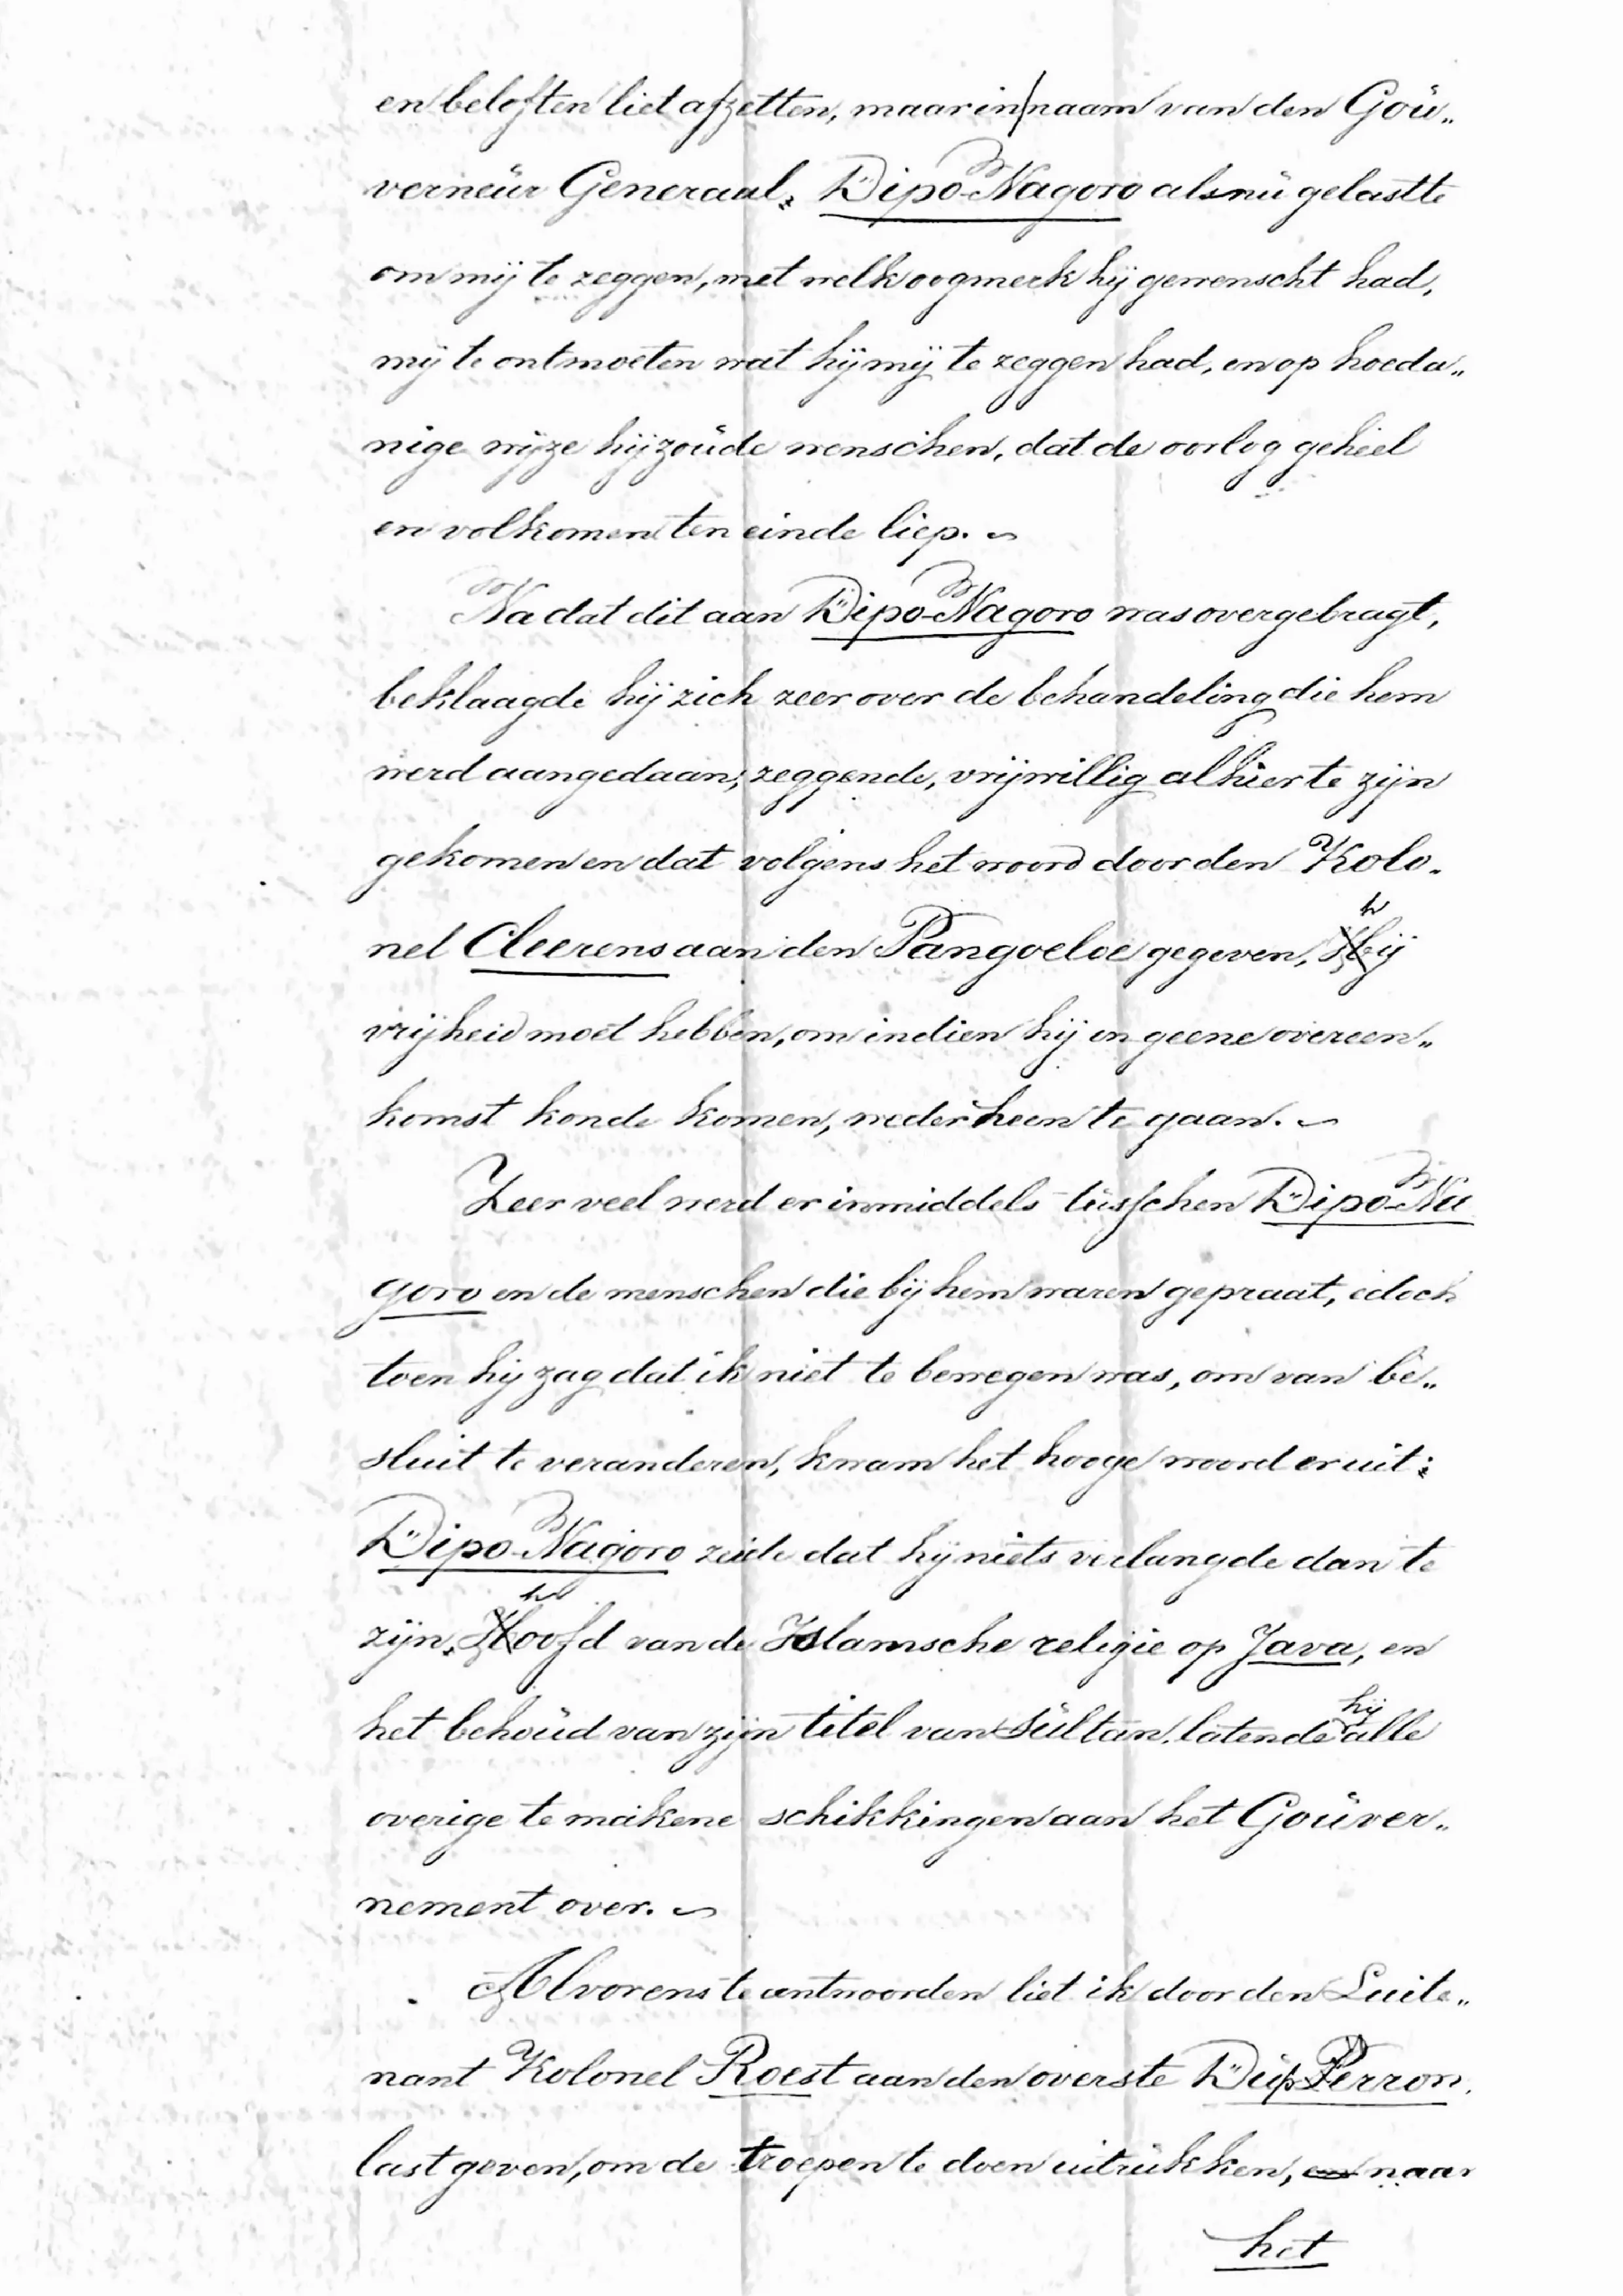 en beloften liet afzetten, maar in naam van den Goü„
verneür Generaal; Dipo-Nagoro als nü gelastte
om mij te zeggen, met welk oogmerk hij gewenscht had,
mij te ontmoeten wat hij mij te zeggen had, en op hoeda„
nige wijze hij zoüde wenschen, dat de oorlog geheel
en volkomen ten einde liep. ~
Na dat dit aan Dipo-Nagoro was overgebragt,
beklaagde hij zich zeer over de behandeling die hem
werd aangedaan; zeggende, vrijwillig alhier te zijn
gekomen en dat volgens het woord door den Kolo„
nel Cleerens aan den Pangoeloe gegeven, hij
vrijheid moet hebben, om indien hij in geene overeen„
komst konde komen, weder heen te gaan. ~
Zeer veel werd er inmiddels tüsschen Dipo-Na
goro en de menschen die bij hem waren gepraat, edoch
toen hij zag dat ik niet te bewegen was, om van be„
sluit te veranderen, kwam het hooge woord er uit;
Dipo-Nagoro zeide dat hij niets verlangde dan te
zijn, hoofd van de Islamsche religie op Java, en
het behoüd van zijn titel van Sültan, latende hij alle
overige te makene schikkingen aan het Goüver„
nement over. ~
Alvorens te antwoorden liet ik door den Luite„
nant Kolonel Roest aan den overste Düs Perron,
last geven, om de troepen te doen uitrükken, en naar
het